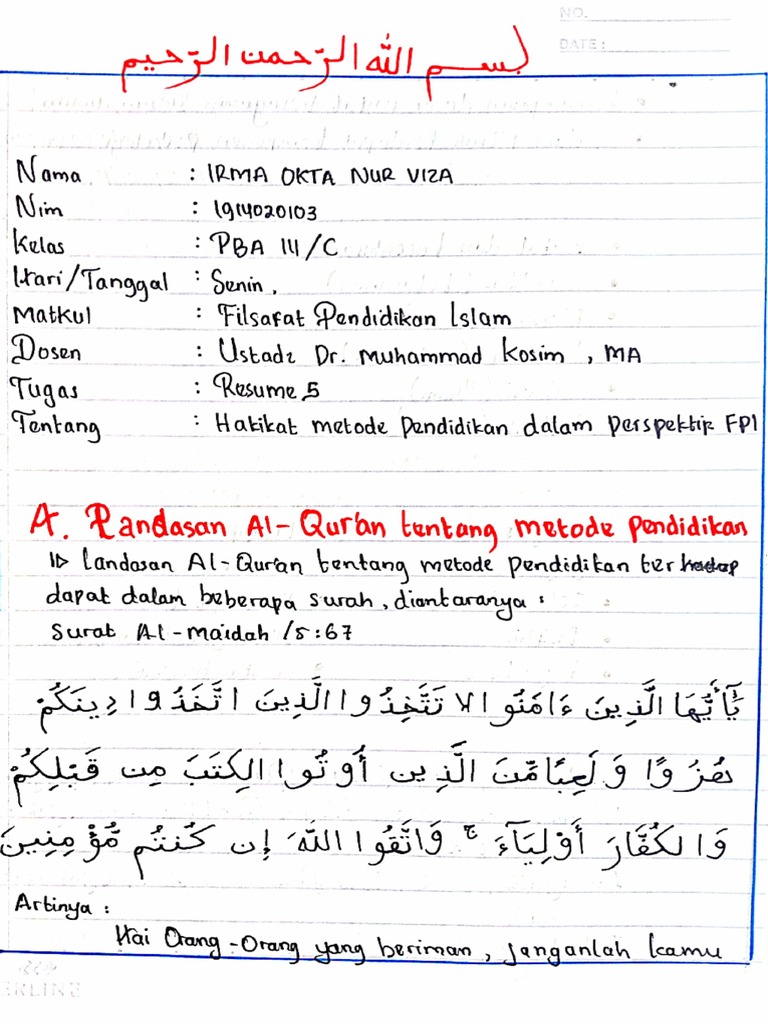 NO.
DATE :
بسم الله الرّحمن الرّحيم
Nama : IRMA OKTA NUR VIZA
Nim : 1914020103
Kelas : PBA III/C
Hari/Tanggal : Senin,
Matkul : Filsafat Pendidikan Islam
Dosen : Ustadz Dr. Muhammad Kosim , MA
Tugas : Resume 5
Tentang : Hakikat metode pendidikan dalam perspektif FPI
A. Landasan Al-Qur'an tentang metode pendidikan
Landasan Al-Qur'an tentang metode pendidikan ter
dapat dalam beberapa surah, diantaranya :
Surat Al-maidah /5:67
يَٰٓأَيُّهَا الَّذِينَ ءَامَنُوا لَا تَتَّخِذُوا الَّذِينَ اتَّخَذُوا دِينَكُمْ
هُزُوًا وَلَعِبًا مِّنَ الَّذِينَ أُوتُوا الكِتَبَ مِن قَبْلِكُمْ
وَالكُفَّارَ أَوْلِيَآءَ ۚ وَاتَّقُوا اللّٰهَ إِن كُنتُم مُّؤْمِنِينَ
Artinya :
Hai Orang-Orang yang beriman, janganlah kamu